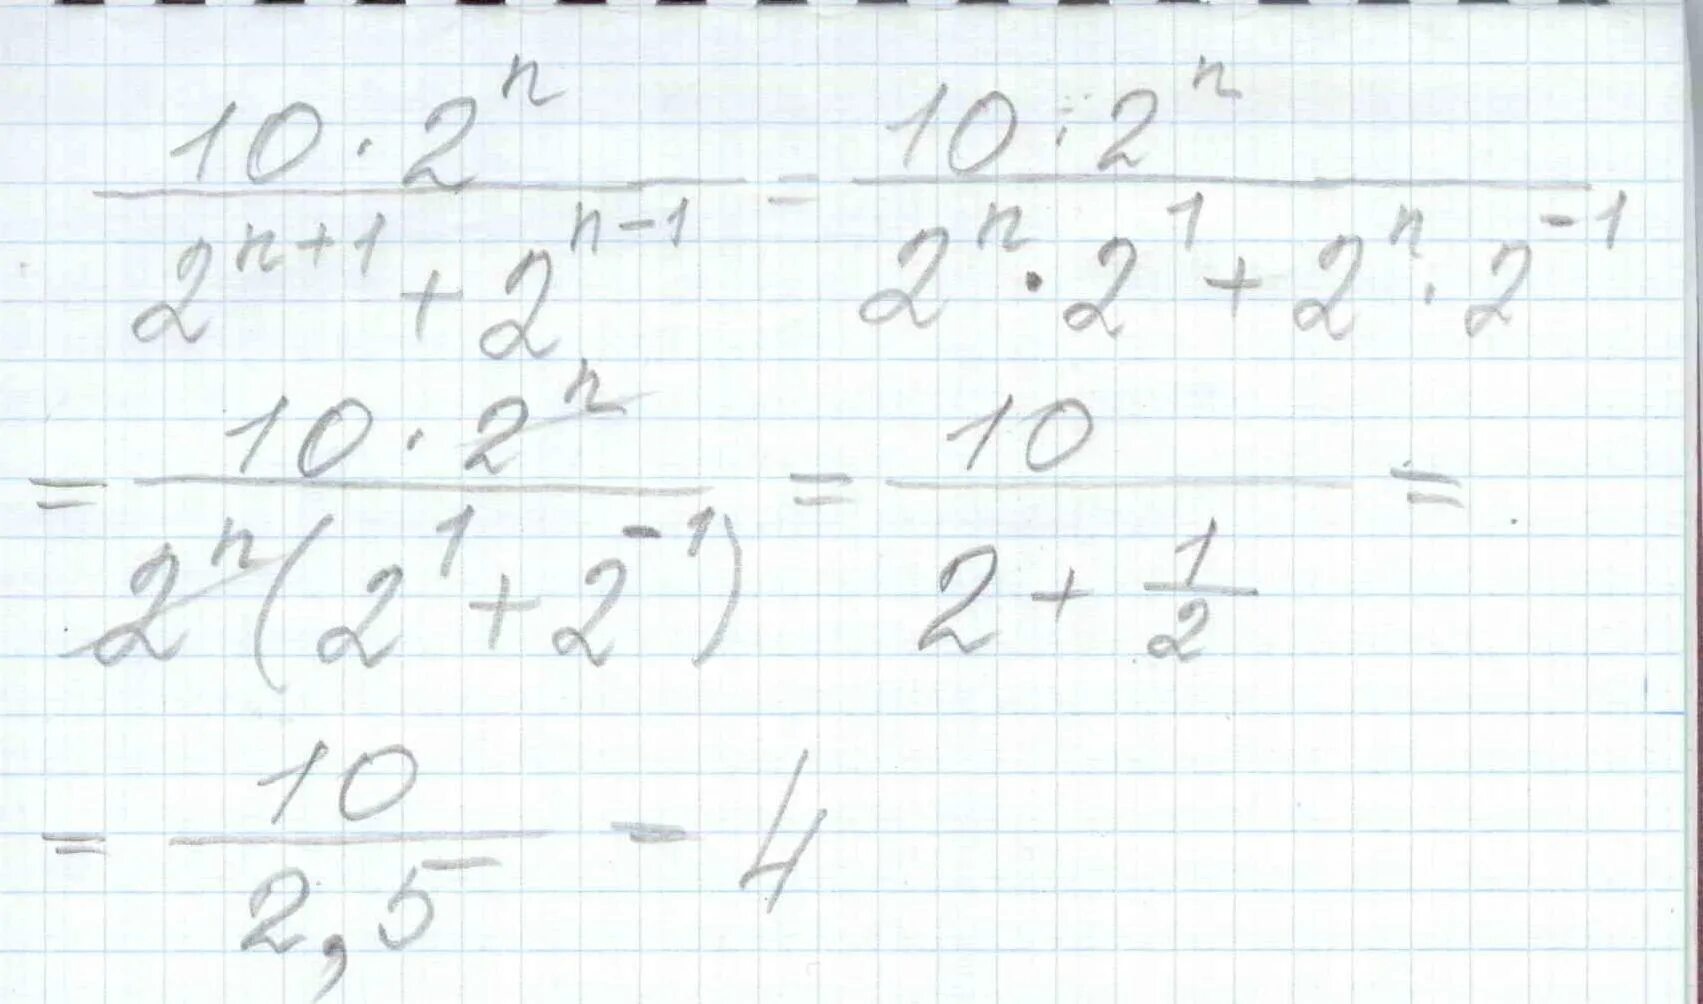 \frac{10 \cdot 2^n}{2^{n+1} + 2^{n-1}} = \frac{10 \cdot 2^n}{2^n \cdot 2^1 + 2^n \cdot 2^{-1}}
= \frac{10 \cdot 2^n}{2^n (2^1 + 2^{-1})} = \frac{10}{2 + \frac{1}{2}} =
= \frac{10}{2,5} = 4